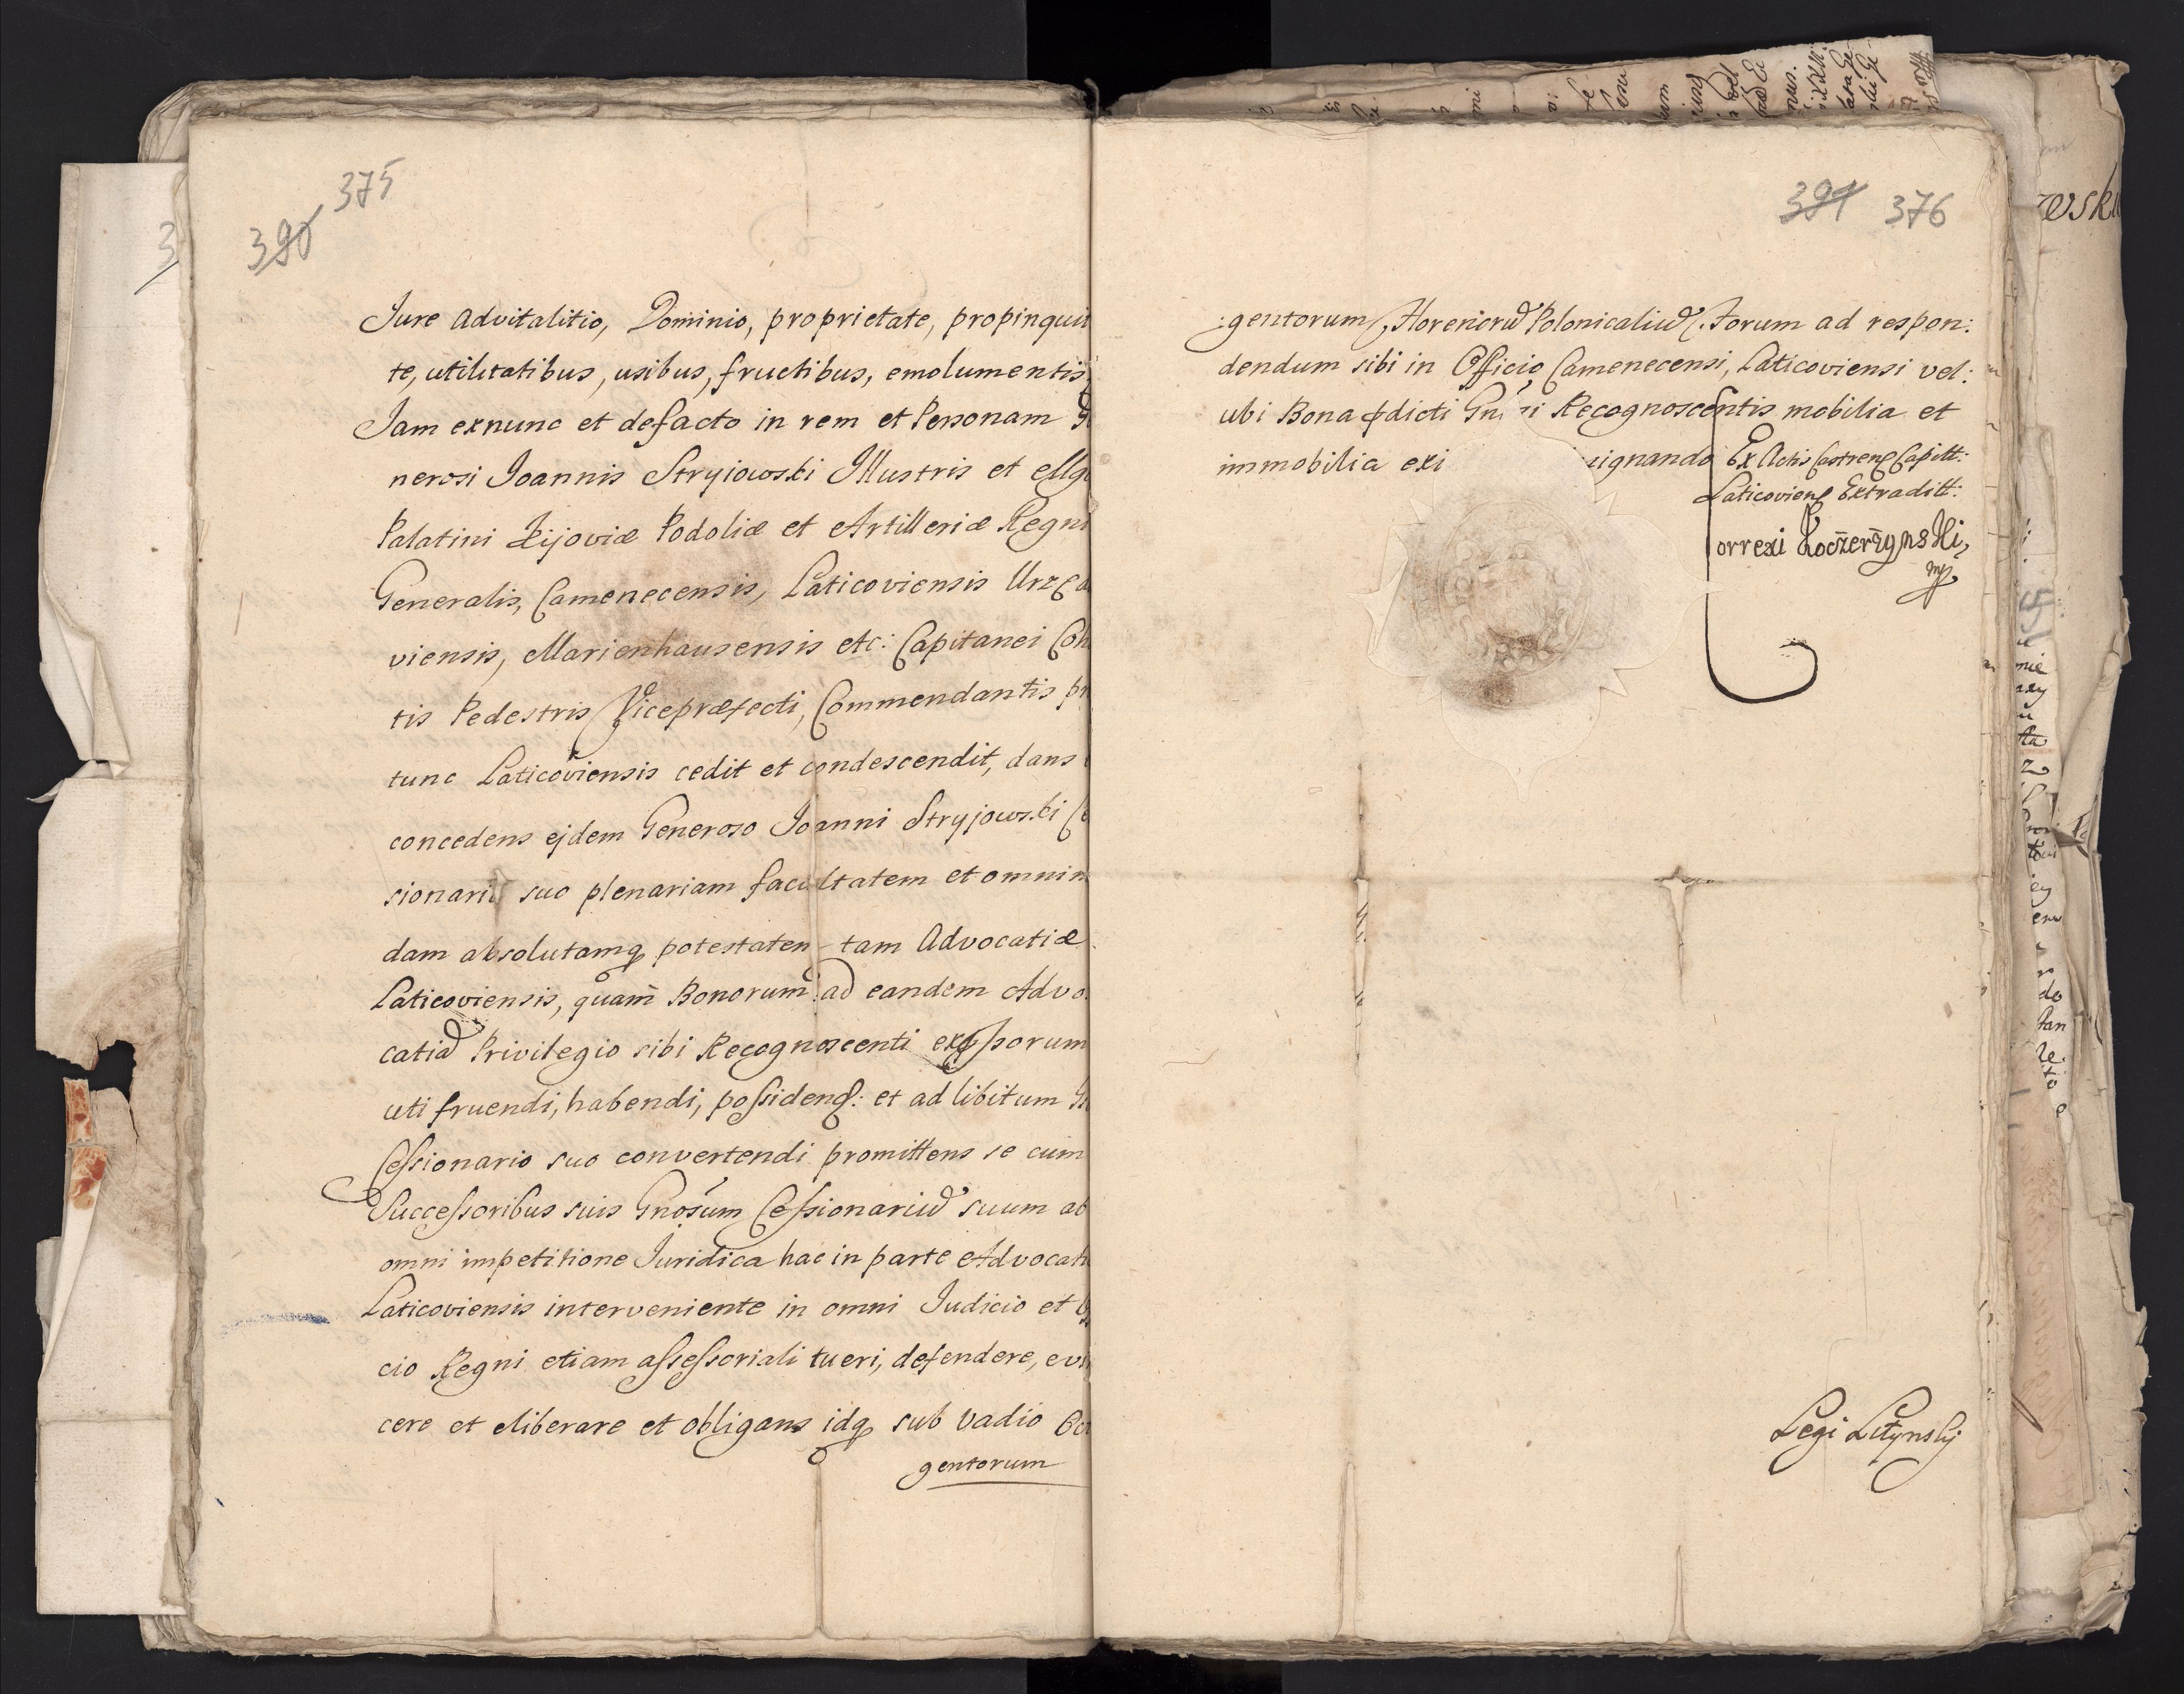 375
390
Jure advitalitio, Dominio, proprietate, propinqui
te, utilitatibus, usibus, fructibus, emolumentis
Jam exnunc et defacto in rem et Personam G
nerosi Joannis Stryiowski Illustris et Mg
Palatini Kijoviæ Podoliæ et Artilleriæ Regni
Generalis, Camenecensis, Laticoviensis Urzęd
viensis, Marienhausensis etc: Capitanei Coh
tis Pedestris Vicepræfecti, Commendantis pr
tunc Laticoviensis cedit et condescendit, dans
concedens ejdem Generoso Joanni Stryjowski Ce
sionario suo plenariam facultatem et omnim
dam absolutamq potestatem tam Advocatiæ
Laticoviensis, quam Bonorum ad eandem Advo
catia Privilegio sibi Recognoscenti
uti fruendi, habendi, possidend: et ad libitum
Cessionario suo convertendi promittens se cum
Successoribus suis Gnosum Cessionariu suum ab
omni impetitione Juridica hac in parte Advocati
Laticoviensis interveniente in omni Judicio et
cio Regni etiam assessoriali tueri, defendere, evi
cere et eliberare et obligans idq sub vadio
gentorum
391 376
:gentorum, Florenoru Polonicaliu, Forum ad respon:
dendum sibi in Officio Camenecensi, Laticoviensi vel:
ubi Bona pdicti Recognoscentis mobilia et
immobilia exi ignando Ex Actis Castren Capitt:
Laticovien Extraditt:
orrexi Koczerzynski
mp
Legi Letynsky